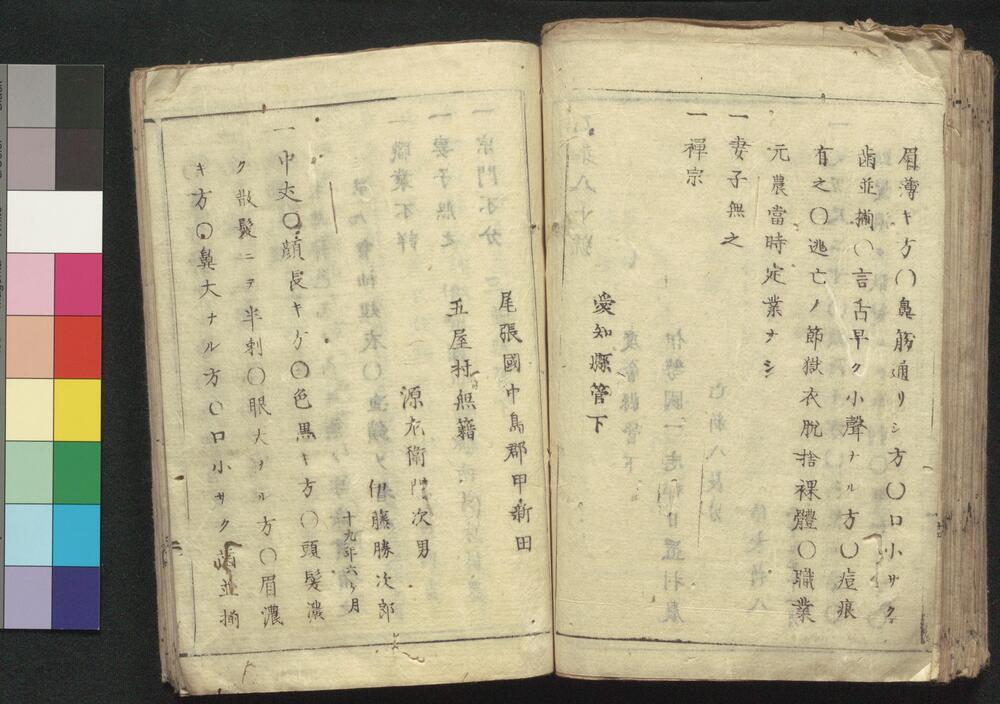 眉薄キ方〇鼻筋通リシ方〇口小サク
歯並揃〇言舌早ク小聲ナル方〇痘痕
有之〇逃亡ノ節獄衣脱捨裸體〇職業
元農當時定業ナシ
一妻子無之
一禪宗
愛知縣管下
尾張國中島郡甲新田
五屋村無籍
源左衛門次男
伊藤勝次郎
十九年六ヶ月
一中丈〇顔長キ方〇色黒キ方〇頭髪濃
ク散髪ニテ半剃〇眼大ナル方〇眉濃
キ方〇鼻大ナル方〇口小サク歯並揃